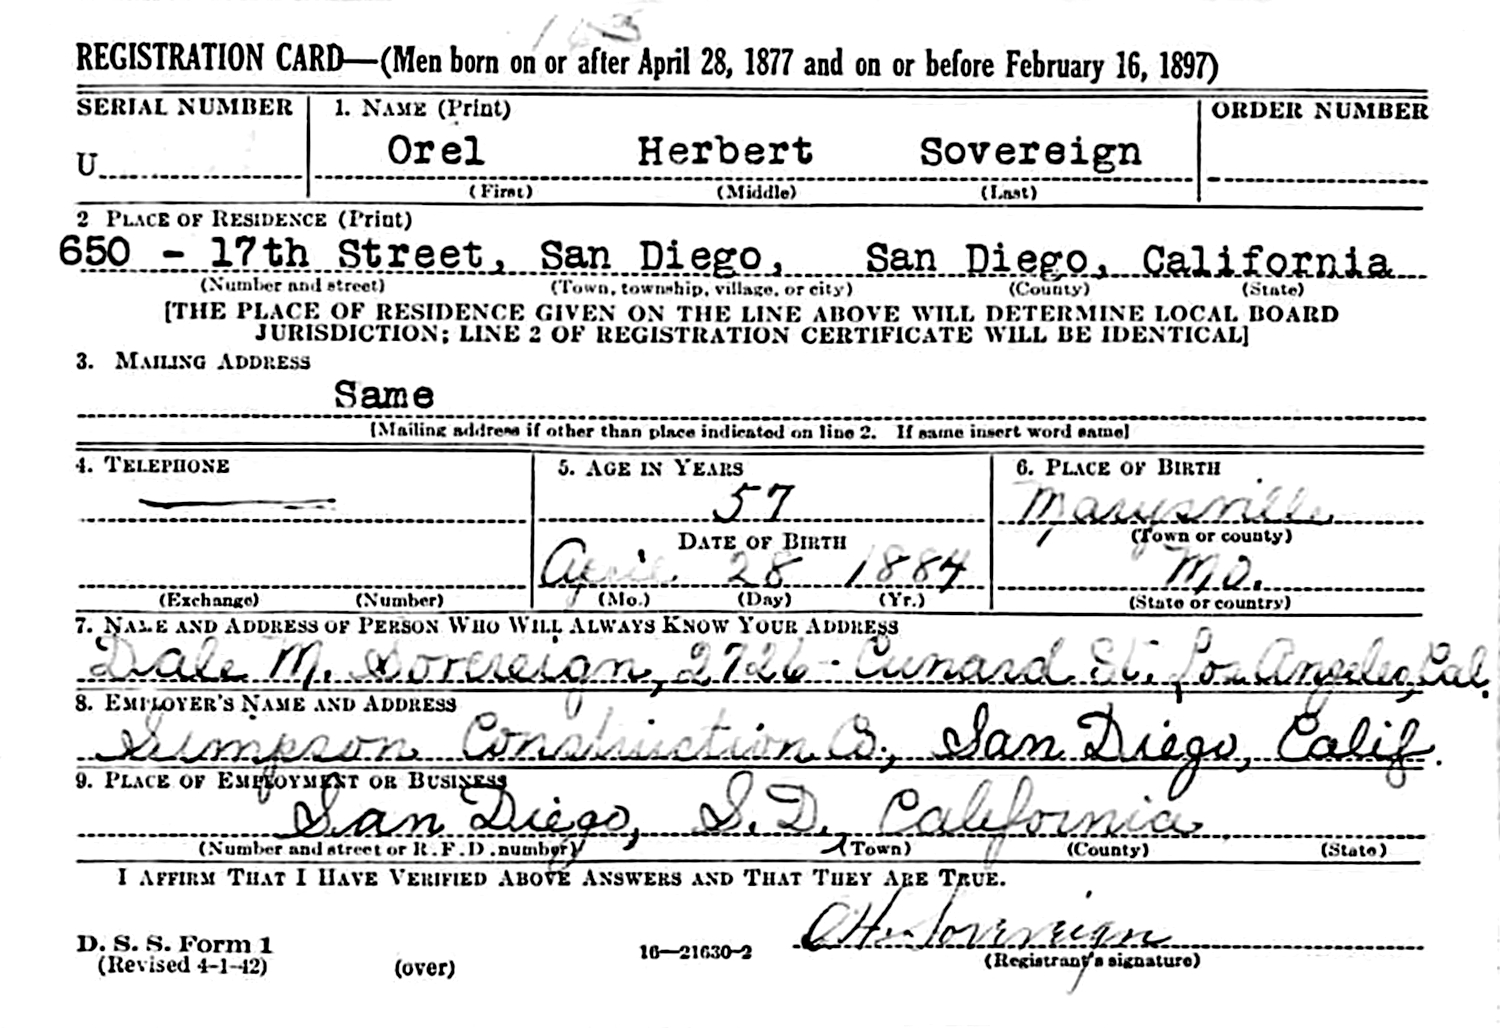 165
REGISTRATION CARD—(Men born on or after April 28, 1877 and on or before February 16, 1897)
SERIAL NUMBER 1. NAME (Print) ORDER NUMBER
U Orel Herbert Sovereign
(First) (Middle) (Last)
2 PLACE OF RESIDENCE (Print)
650 - 17th Street, San Diego, San Diego, California
(Number and street) (Town, township, village, or city) (County) (State)
[THE PLACE OF RESIDENCE GIVEN ON THE LINE ABOVE WILL DETERMINE LOCAL BOARD
JURISDICTION; LINE 2 OF REGISTRATION CERTIFICATE WILL BE IDENTICAL]
3. MAILING ADDRESS
Same
[Mailing address if other than place indicated on line 2. If same insert word same]
4. TELEPHONE 5. AGE IN YEARS 6. PLACE OF BIRTH
57 Marysville
DATE OF BIRTH (Town or county)
April 28 1884 Mo.
(Exchange) (Number) (Mo.) (Day) (Yr.) (State or country)
7. NAME AND ADDRESS OF PERSON WHO WILL ALWAYS KNOW YOUR ADDRESS
Dale M. Sovereign, 2726 - Cunard St. Los Angeles, Cal.
8. EMPLOYER'S NAME AND ADDRESS
Simpson Construction Co., San Diego, Calif.
9. PLACE OF EMPLOYMENT OR BUSINESS
San Diego, S.D., California
(Number and street or R. F. D. number) (Town) (County) (State)
I AFFIRM THAT I HAVE VERIFIED ABOVE ANSWERS AND THAT THEY ARE TRUE.
O H Sovereign
D. S. S. Form 1
(Revised 4-1-42) (over) 16—21630-2 (Registrant's signature)